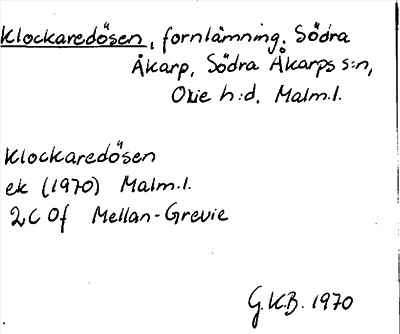 Klockaredösen, fornlämning. Södra
Åkarp, Södra Åkarps s:n,
Oxie h:d. Malm.l.
Klockaredösen
ek (1970) Malm.l.
2C 0f Mellan-Grevie
G.K.B. 1970